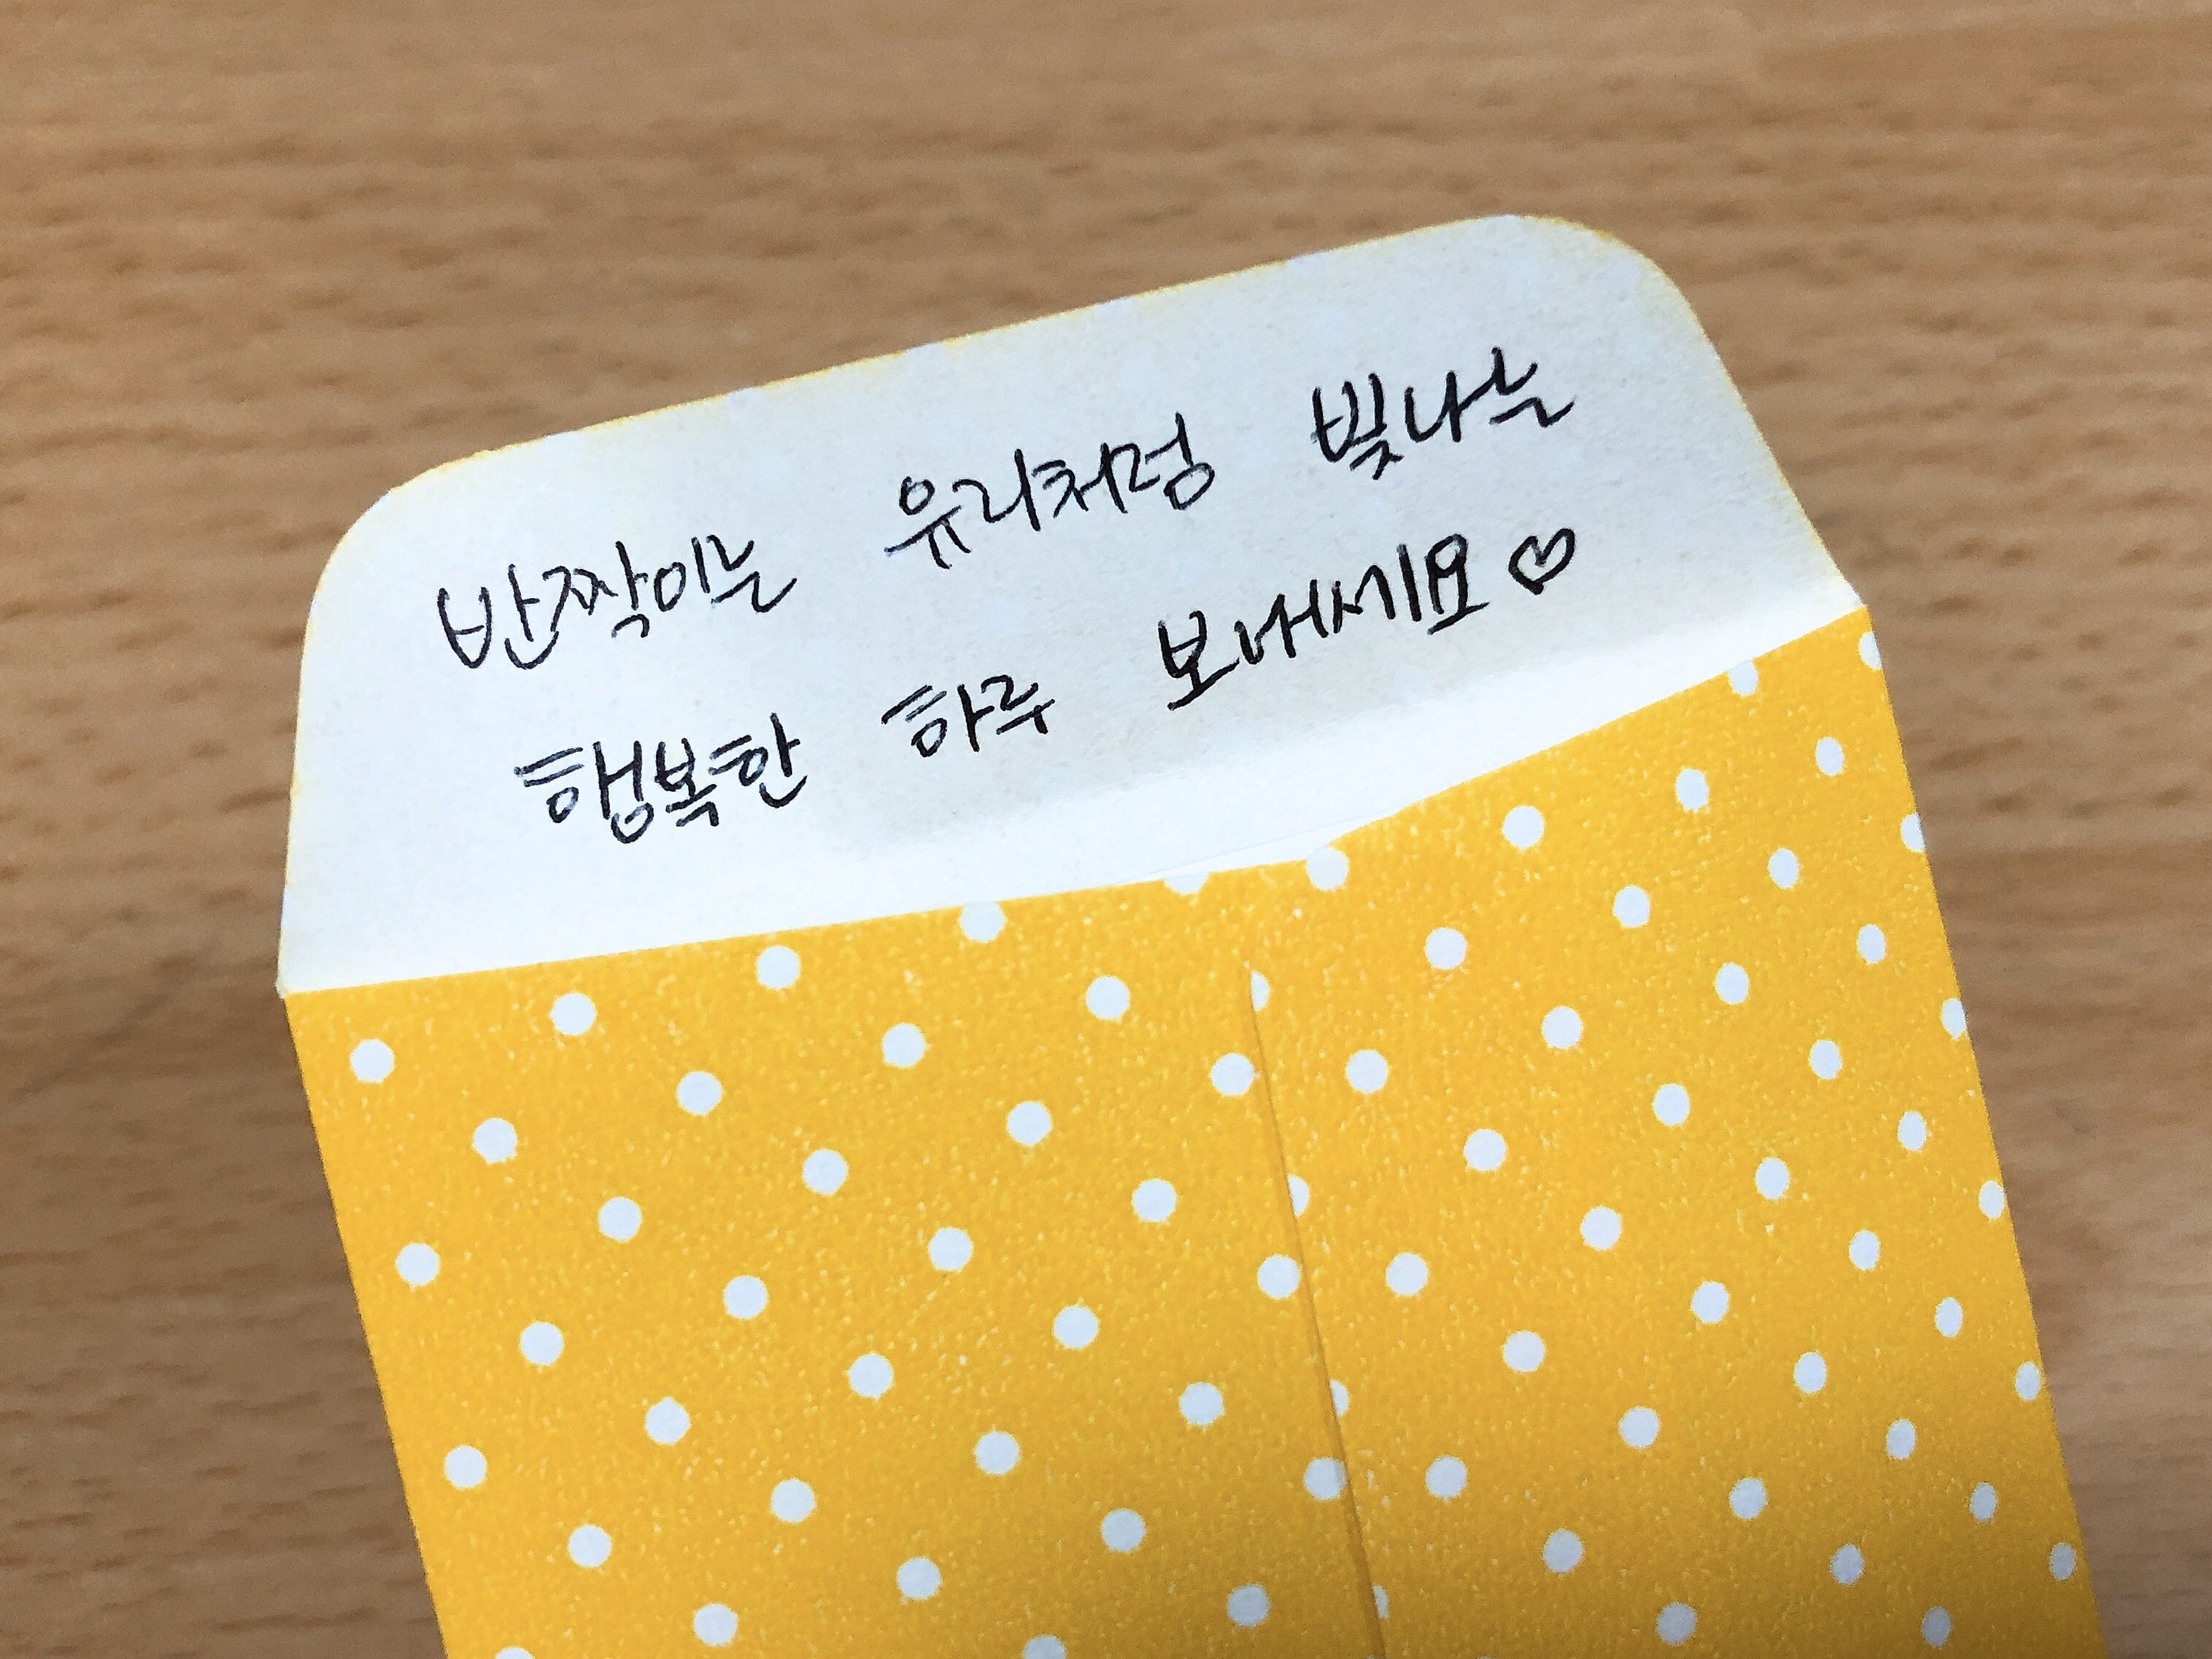 반짝이는 유리처럼 빛나는
행복한 하루 보내세요♡